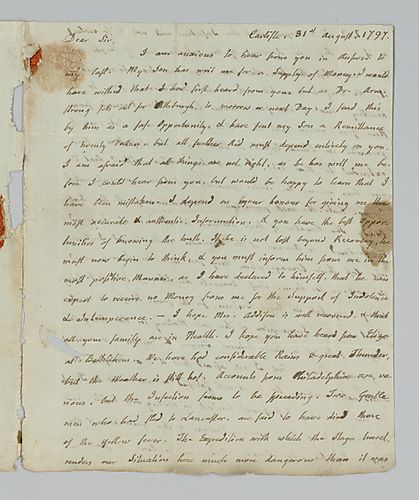 Carlisle, 31st August 1797.
Dear Sir,
I am anxious to hear from you in answer to
my last. My Son has writ me for a Supply of Money. I would
have wished that I had first heard from you but as Dr. Arm-
strong sets out for Pittsburgh to morrow or next Day, I send this
by him as a safe Opportunity, & have sent my Son a Remittance
of twenty Dollars, but all further Aid must depend entirely on you.
I am afraid that all things are not right, as he has writ me be-
fore I could hear from you, but would be happy to learn that I
have been mistaken. I depend on your honour for giving me the
most accurate & authentic Information, & you have the best Oppor-
tunities of knowing the truth. If he is not lost beyond Recovery, he
must now begin to think, & you must inform him from me in the
most positive Manner, as I have declared to himself, that he can
expect to receive no Money from me for the Support of Indolence
& Intemperance. — I hope Mrs. Addison is well recovered, & that
all your family are in Health. I hope you have heard from Eliza
at Bethlehem. We have had considerable Rains & great Thunder,
but the Weather is still hot. Accounts from Philadelphia are va-
rious, but the Infection seems to be spreading. Two Gentle-
men who had fled to Lancaster, are said to have died there
of the Yellow fever. The Expedition with which the Stages travel,
renders our Situation here much more dangerous than it was